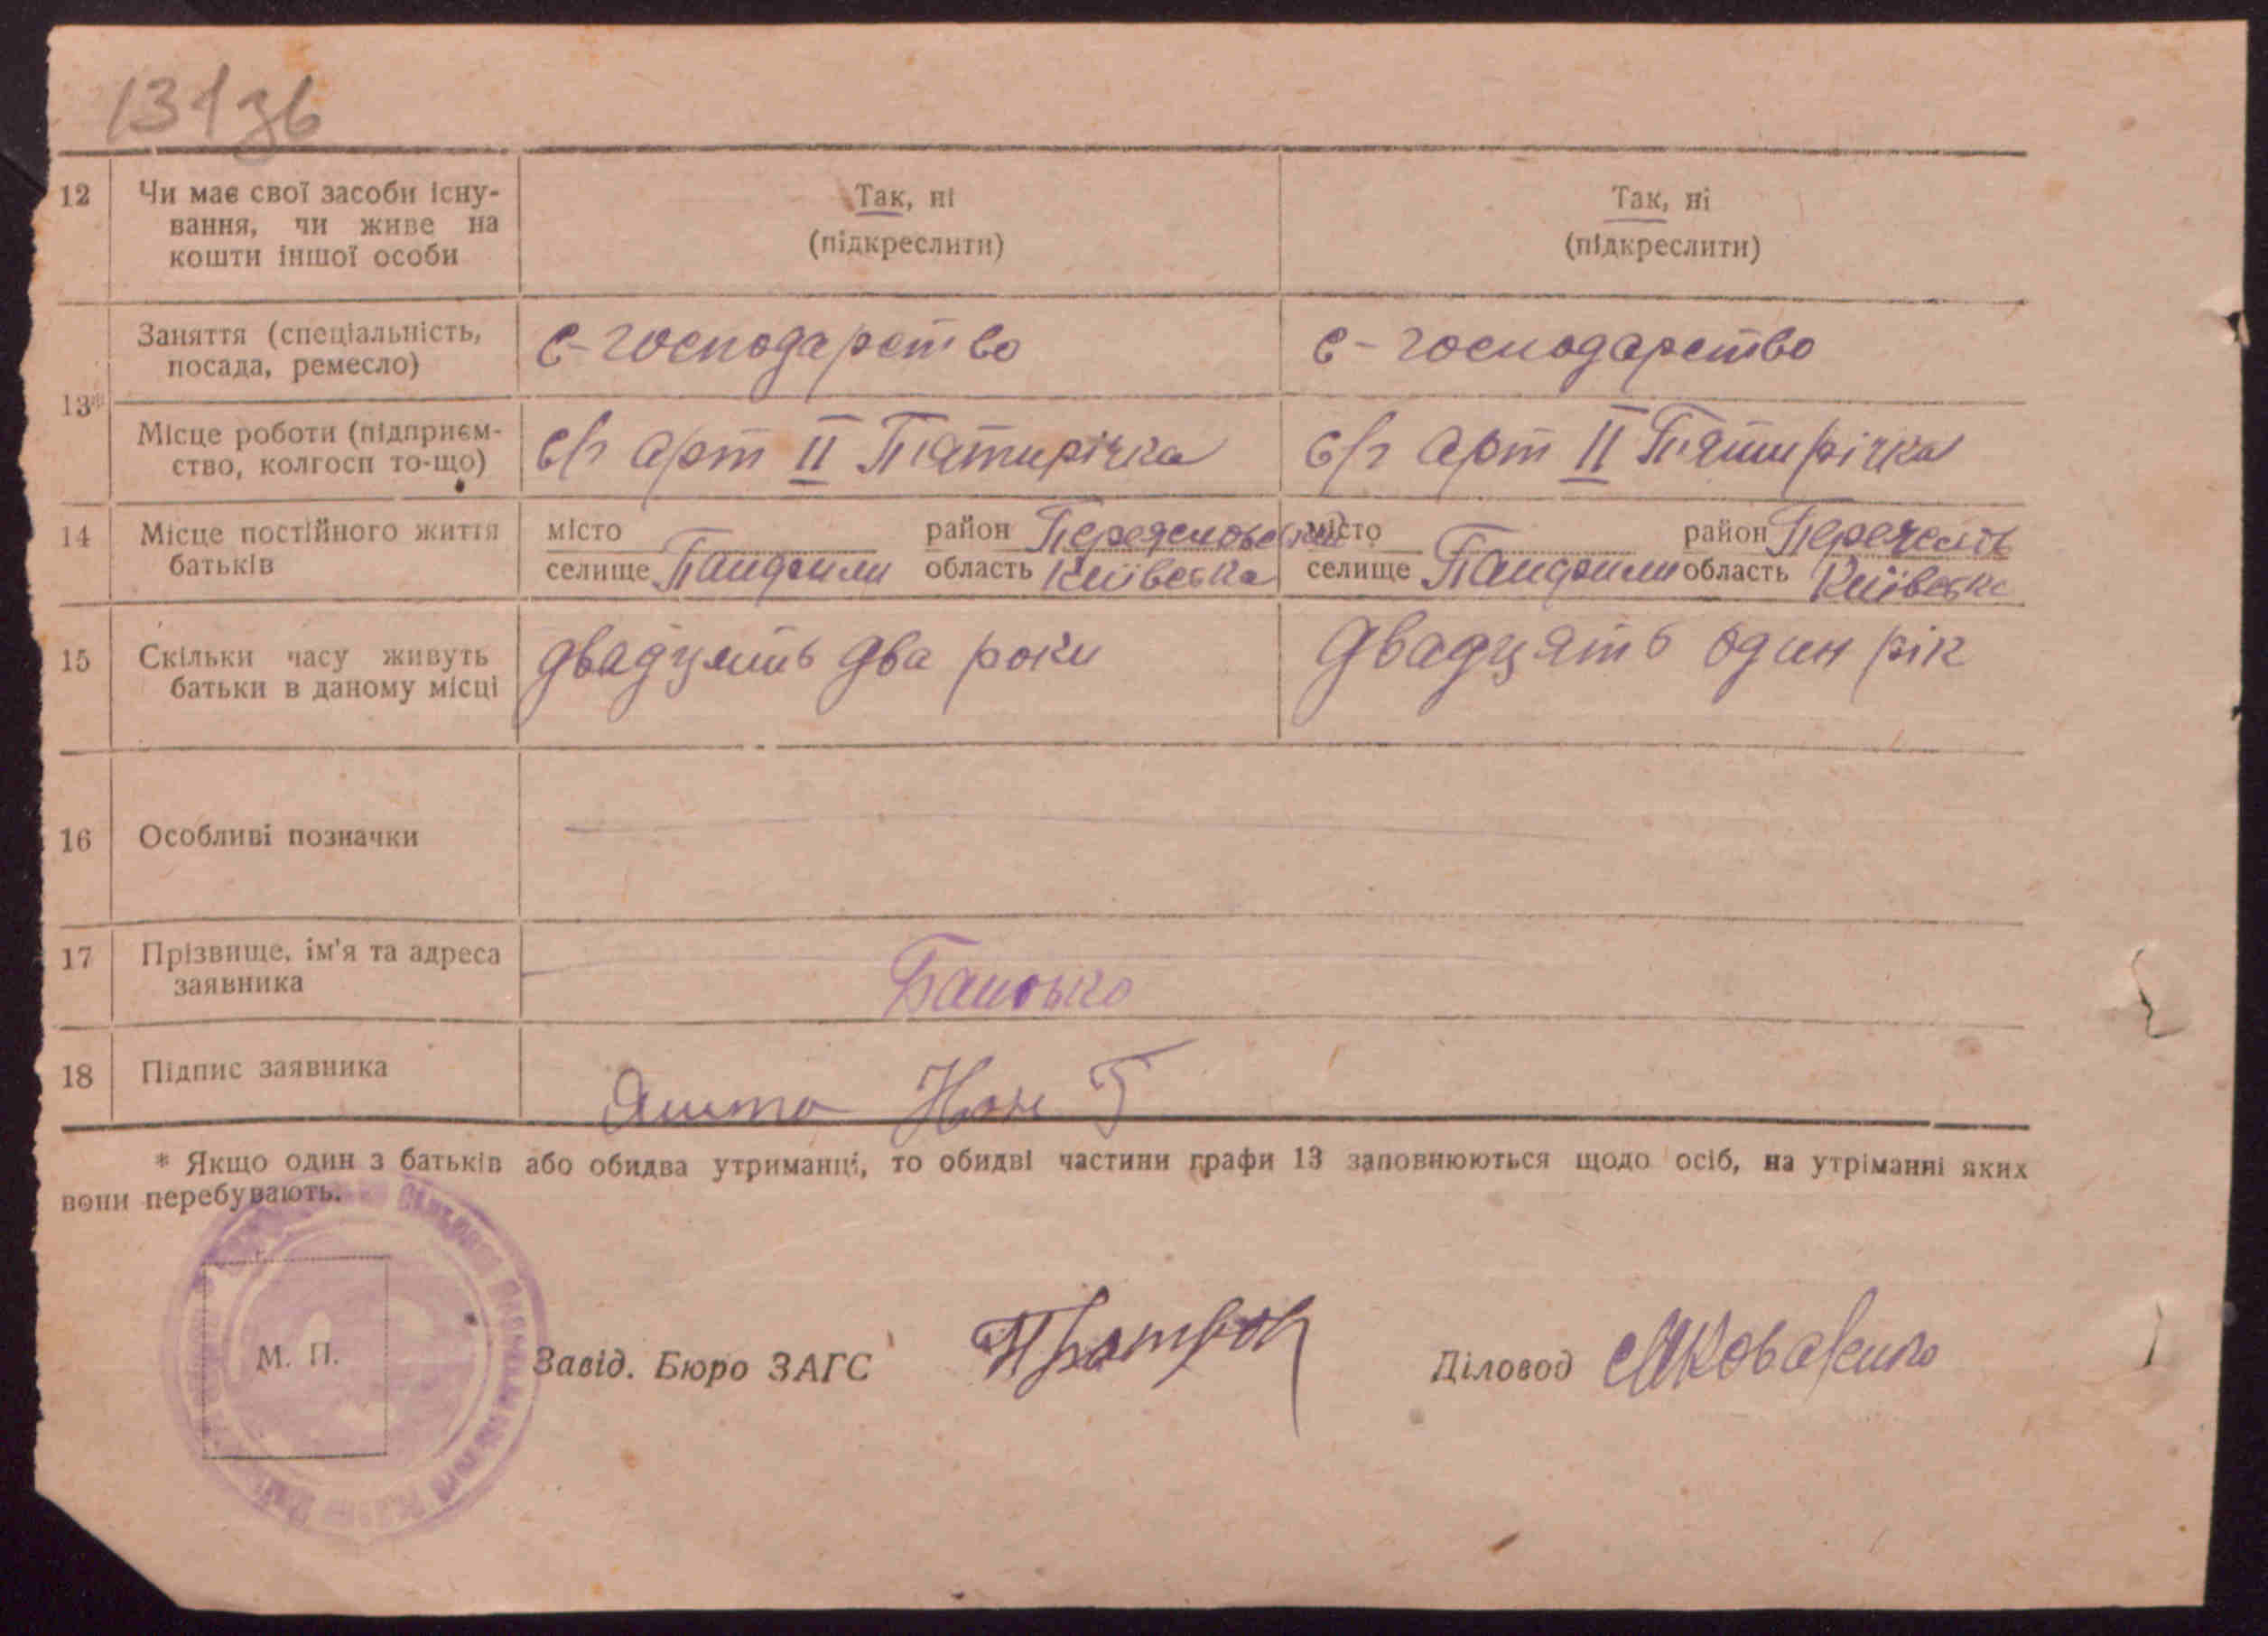 131зв
12 Чи має свої засоби існу- Так, ні Так, ні
вання, чи живе на (підкреслити) (підкреслити)
кошти іншої особи
13* Заняття (спеціальність, с-господарство с-господарство
посада, ремесло)
Місце роботи (підприєм- с/г арт ІІ Пятирічка с/г арт ІІ Пятирічка
ство, колгосп то-що)
14 Місце постійного життя місто район місто район
батьків селище область Київська селище область Київська
15 Скільки часу живуть двадцять два роки двадцять один рік
батьки в даному місці
16 Особливі позначки
17 Прізвище, ім'я та адреса Батько
заявника
18 Підпис заявника
* Якщо один з батьків або обидва утриманці, то обидві частини графи 13 заповнюються щодо осіб, на утріманні яких
вони перебувають.
М. П.
Завід. Бюро ЗАГС Діловод МКоваленко